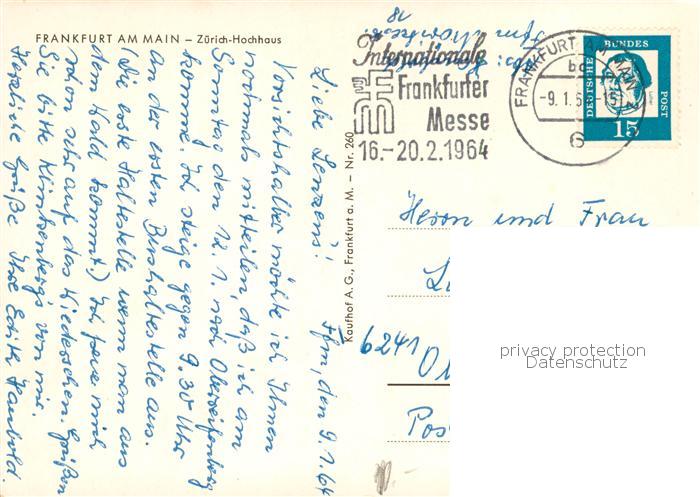 FRANKFURT AM MAIN – Zürich-Hochhaus
Ffm, den 9.1.64
Liebe Lenzens!
Vorsichtshalber möchte ich Ihnen
nochmals mitteilen, daß ich am
Sonntag den 12.1. nach Oberseifenberg
komme. Ich steige gegen 9.30 Uhr
an der ersten Bushaltestelle aus.
(Die erste Haltestelle wenn man aus
dem Wald kommt.) Ich freue mich
schon sehr auf das Wiedersehen. Grüßen
Sie bitte von mir.
Herzliche Grüße Ihre Edith Haubold.
Kaufhof A. G., Frankfurt a. M. – Nr. 260
Abs:
Ffm
18
Internationale
Frankfurter
Messe
16.-20.2.1964
FRANKFURT AM MAIN 2
bd
-9.1.6 -15
e
DEUTSCHE BUNDES POST
15
Herrn und Frau
6241
privacy protection
Datenschutz